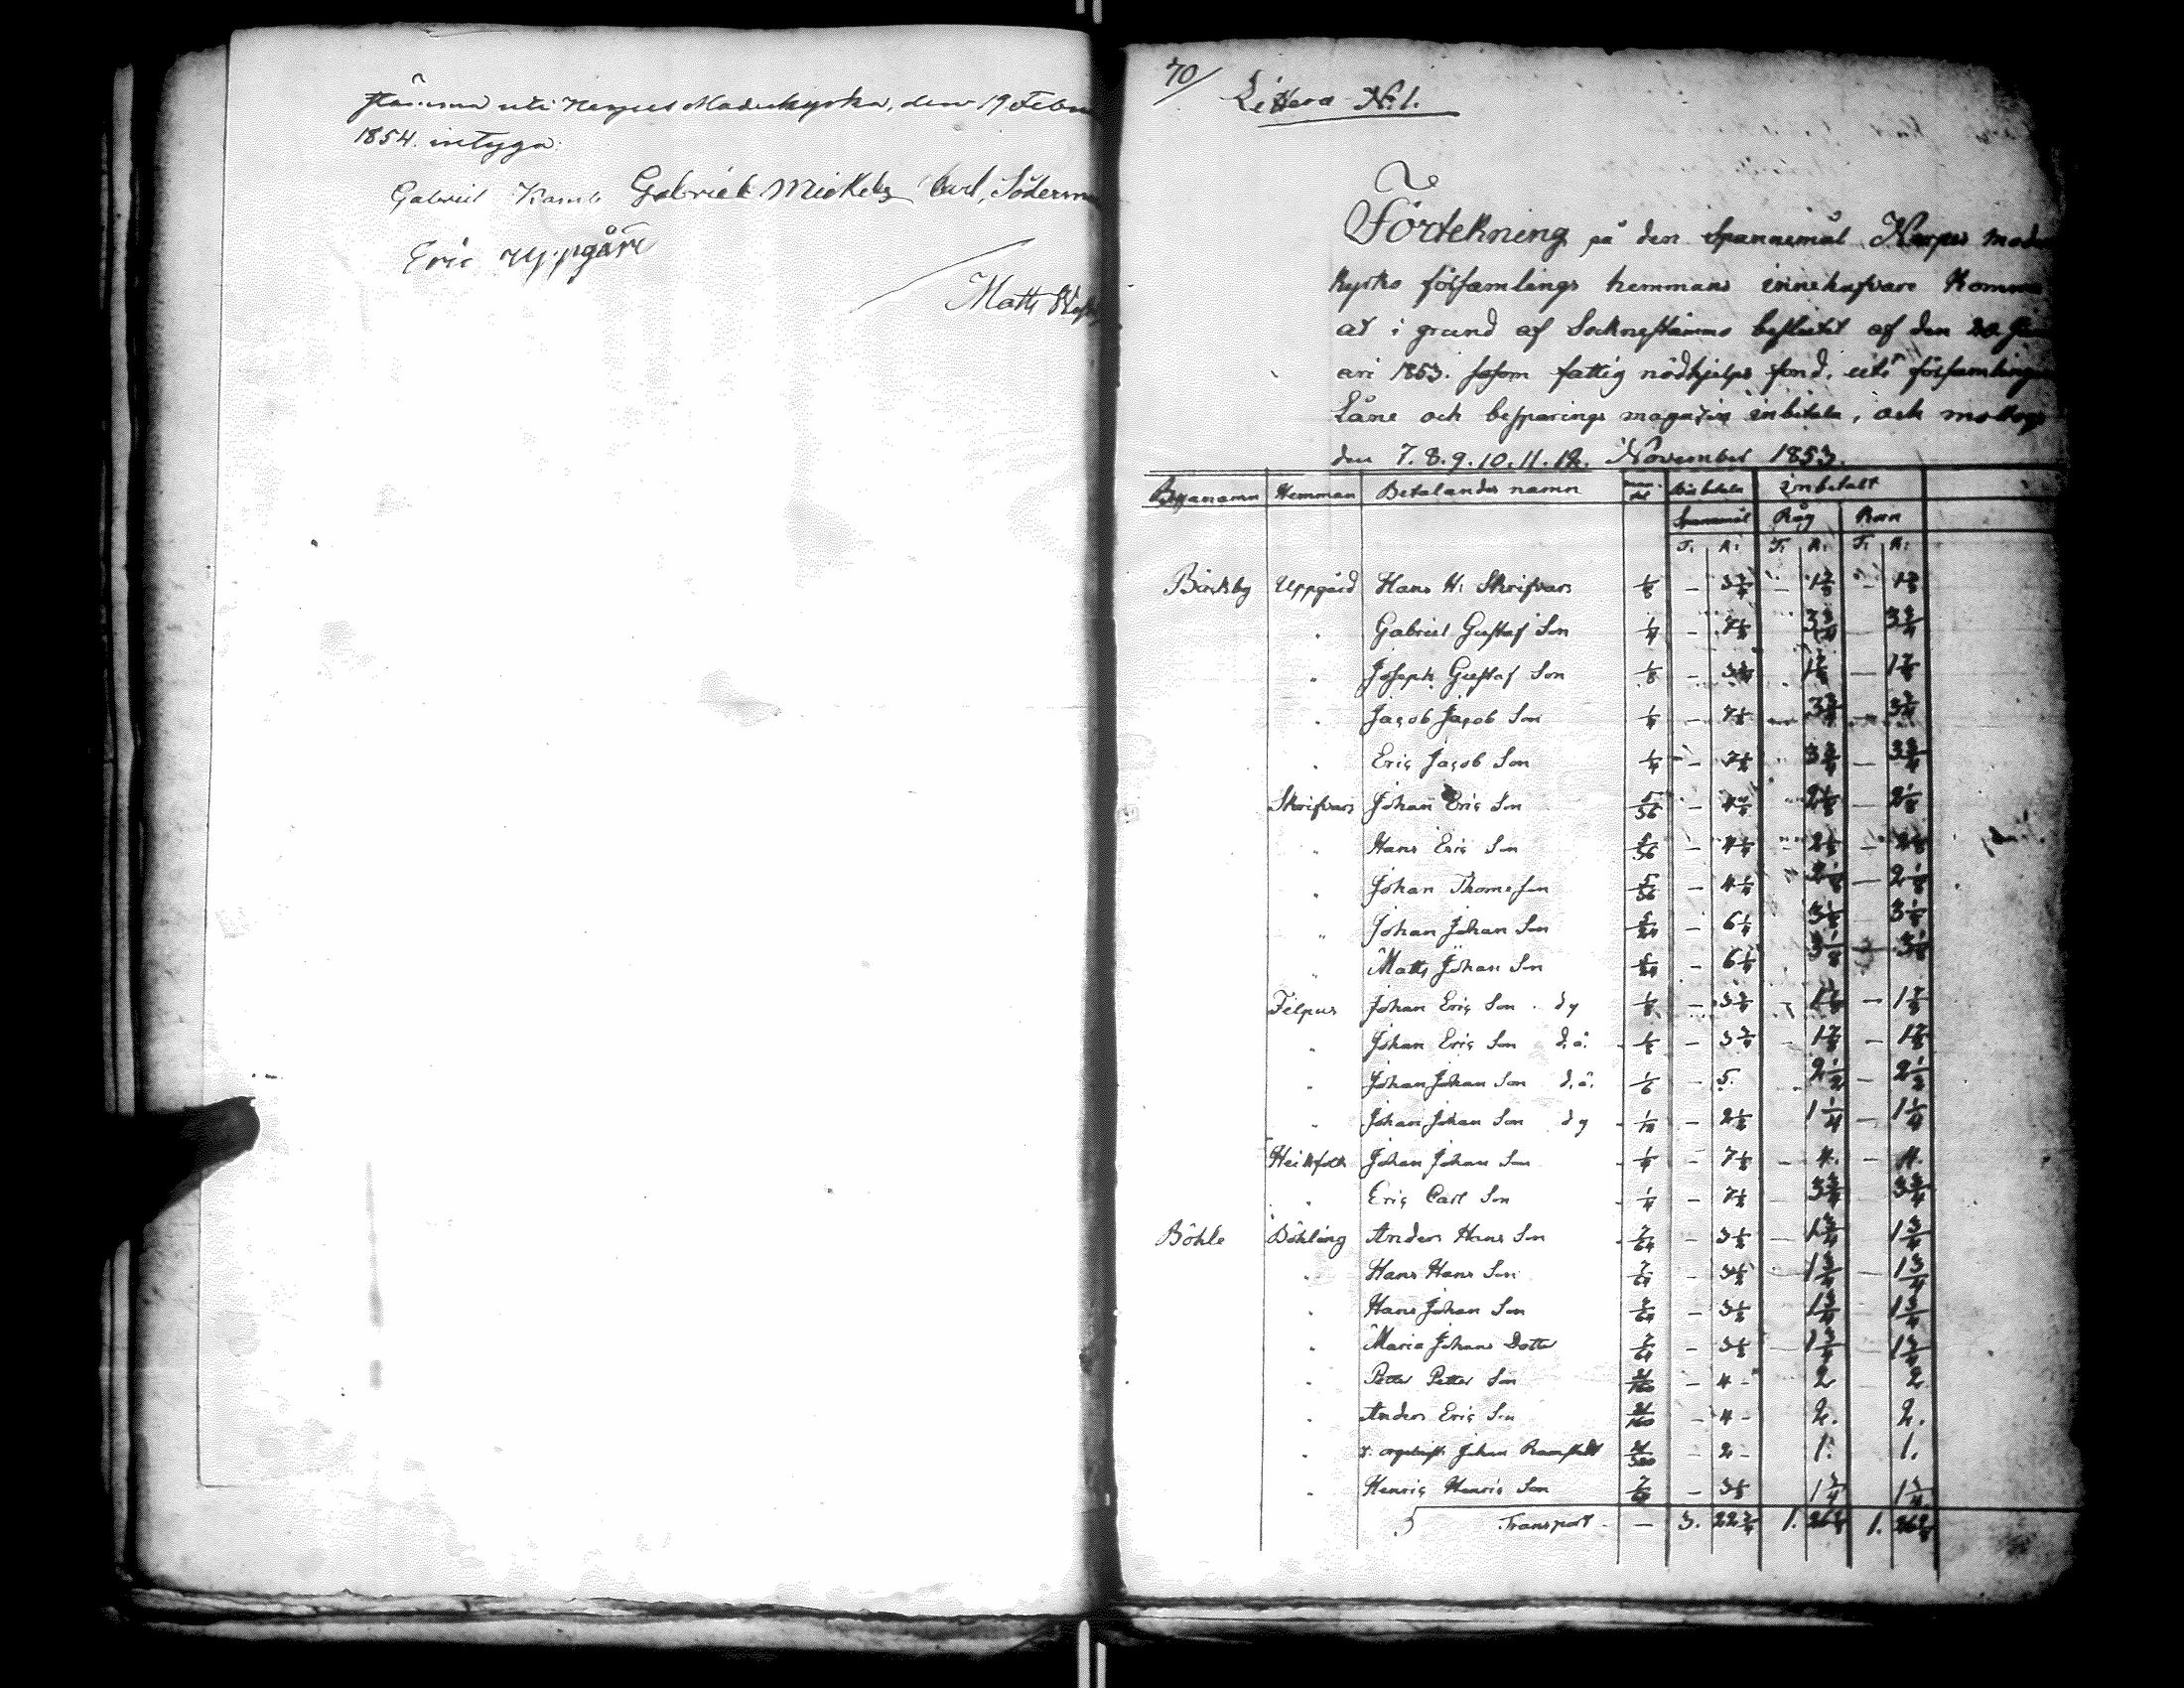 stämma uti Nerpes Moderkyrka, den 19 Febru
1854. intyga:
Gabriel Gabriel Mickels Carl, Söderm
Eric Uppgård
Matts
70/
Littera N:1.
Förtekning på den Spannemål Nerpes Moder
kyrko församlings hemmans innehafvare komma
at i grund af Socknestämmo beslutet af den 20 Janu
ari 1853. såsom fattig nödhjelps fond, uti församlingens
Låne och besparings magazin inbetala, och mottogs
den 7. 8. 9. 10. 11. 12. November 1853.
Byanamn Hemman Betalandes namn Man- tal Bör betala Inbetalt
Spannmål Råg Korn
T. K. T. K. T. K.
Bäcksby Uppgård Hans H: Skrifvars 1/8 – 3 3/4 – 1 7/8 – 1 7/8
" Gabriel Gustaf Son 1/4 – 7 1/2 3 3/4 – 3 3/4
" Joseph Gustaf Son 1/8 – 3 3/4 1 7/8 – 1 7/8
" Jacob Jacob Son 1/4 – 7 1/2 – 3 3/4 – 3 3/4
" Eric Jacob Son 1/4 – 7 1/2 3 3/4 – 3 3/4
Skrifvars Johan Eric Son 5/36 – 4 1/4 2 1/8 – 2 1/8
" Hans Eric Son 5/36 – 4 1/4 – 2 1/8 – 2 1/8
" Johan Thomesson 5/36 – 4 1/4 2 1/8 – 2 1/8
" Johan Johan Son 5/24 – 6 1/4 3 1/8 – 3 1/8
" Matts Johan Son 5/24 – 6 1/4 3 1/8 3 1/8
Filpus Johan Eric Son d y 1/8 – 3 3/4 – 1 7/8 – 1 7/8
" Johan Eric Son d. ä. 1/8 – 3 3/4 – 1 7/8 – 1 7/8
" Johan Johan Son d. ä. 1/6 – 5. 2 1/2 – 2 1/2
" Johan Johan Son d y 1/12 – 2 1/2 1 1/4 – 1 1/4
Johan Johan Son 1/4 – 7 1/2 – 4. – 4.
" Eric Carl Son 1/4 – 7 1/2 – 3 3/4 3 3/4
Böhle Böhling Anders Hans Son 7/64 – 3 1/2 – 1 3/4 1 3/4
" Hans Hans Son 7/64 – 3 1/2 – 1 3/4 – 1 3/4
" Hans Johan Son 7/64 – 3 1/2 1 3/4 – 1 3/4
" Maria Johans Dotter 7/64 – 3 1/2 – 1 3/4 1 3/4
" Petter Petter Son 21/160 – 4 – 2 2
" Anders Eric Son 21/160 – 4 – 2. 2.
" Johan Ramstedt 21/320 – 2 – 1. 1.
" Henric Henric Son 7/64 – 3 1/2 1 3/4 1 3/4
Transport – 3. 22 3/4 1. 1.